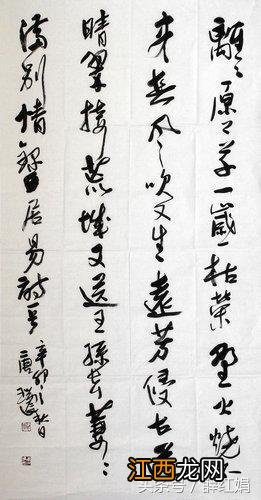 離〻原上草一歲一枯榮野火燒不
尽春风吹又生遠芳侵古道
晴翠接荒城又送王孫去萋〻
滿別情錄白居易詩一首
辛卯秋日
头条号
江西龙网